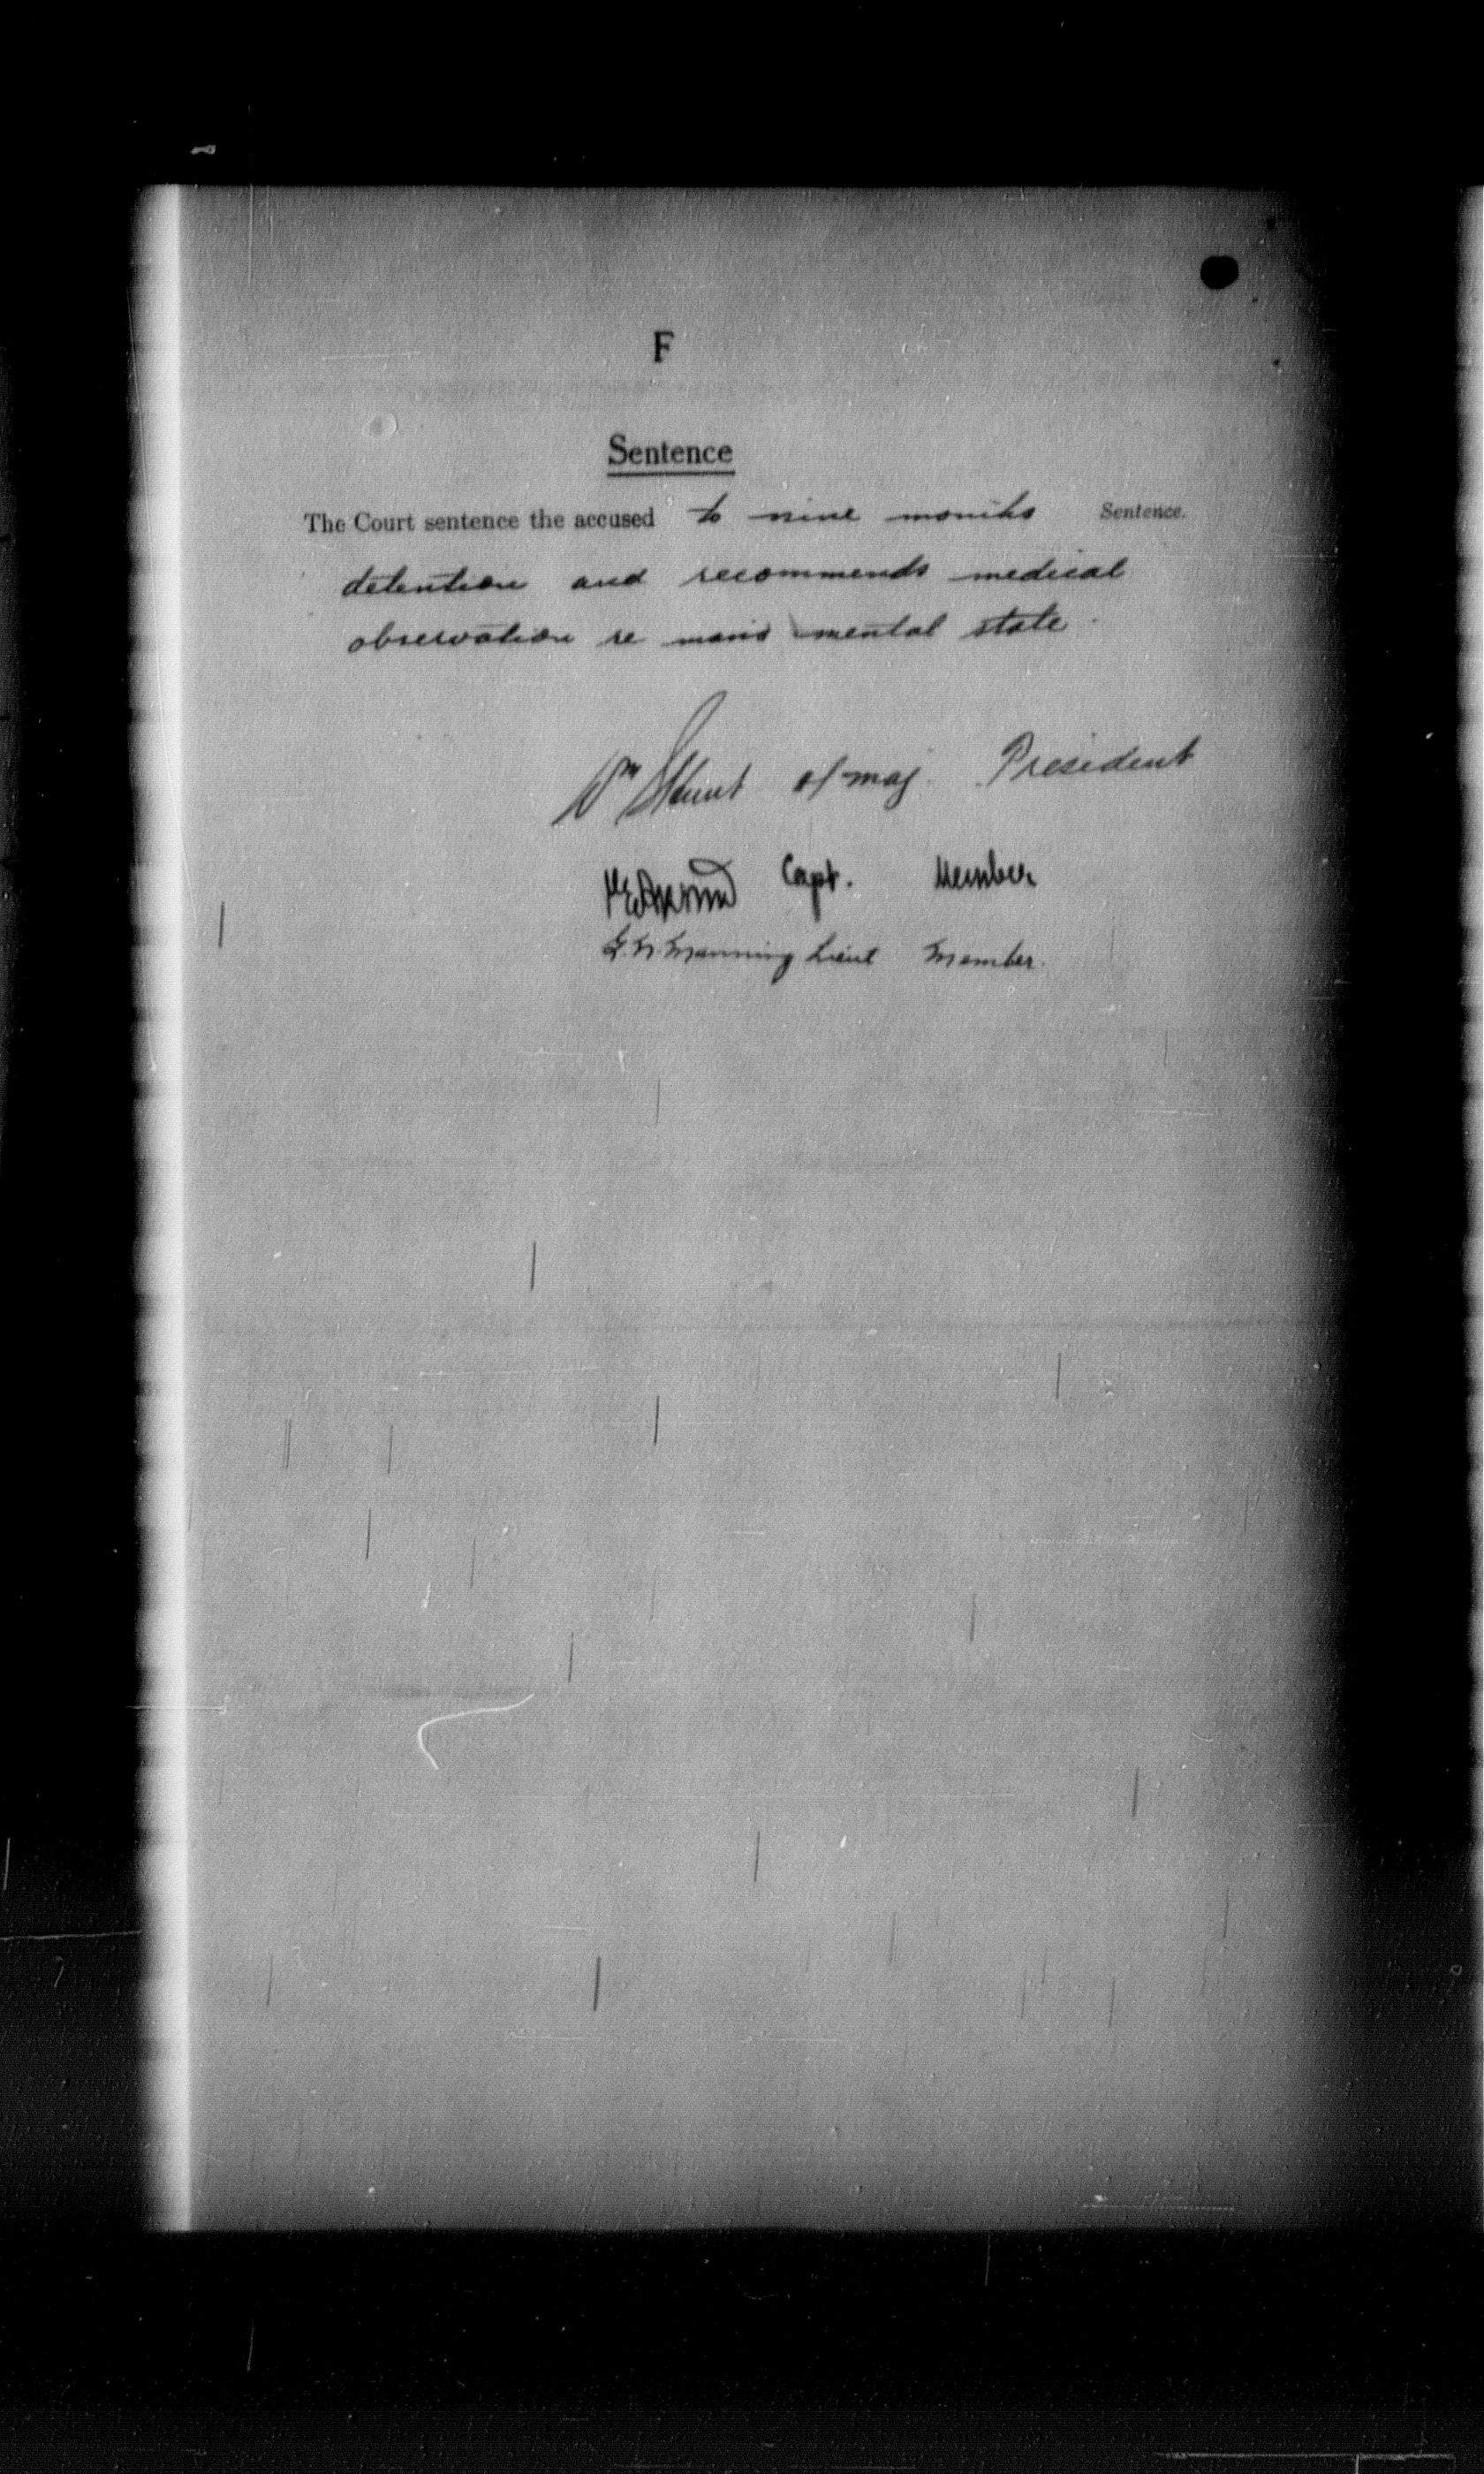 F
Sentence
The Court sentence the accused to nine months Sentence.
detention and recommends medical
observation re mans mental state.
Wm a/maj. President
Capt. Member
Manning Lieut Member.